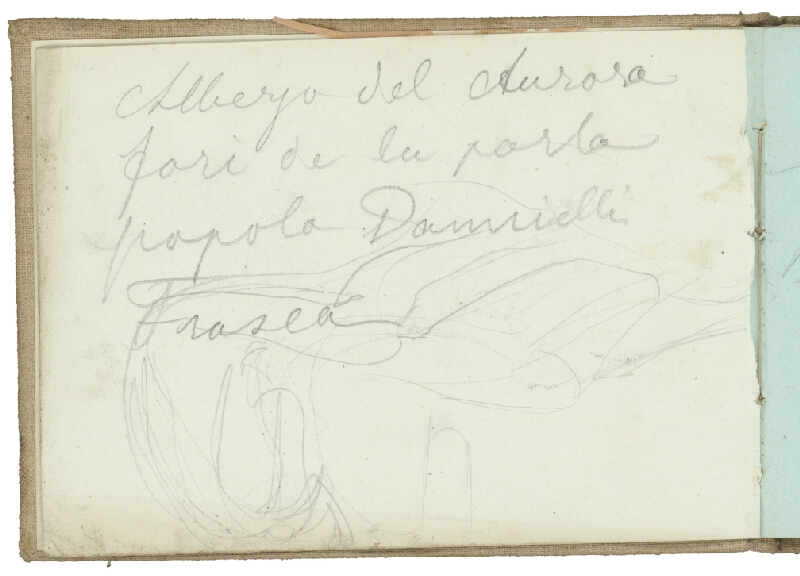 Albergo del Aurora
fori de la porta
popolo Dannielli
Frasca